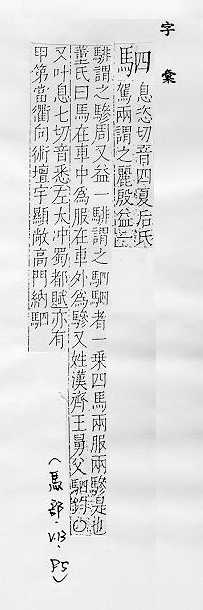 字彙
駟 息恣切音四夏后氏
駕兩謂之麗殷益一
騑謂之驂周又益一騑謂之駟駟者一乗四馬兩服兩驂是也
董氏曰馬在車中為服在車外為驂又姓漢齊王舅父駟鈞○
又叶息七切音悉左太冲蜀都賦亦有
甲第當衢向術壇宇顯敞高門納駟
(馬部.V13.P5)